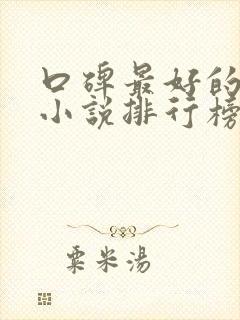 口碑最好的
小说排行榜
粟米湯